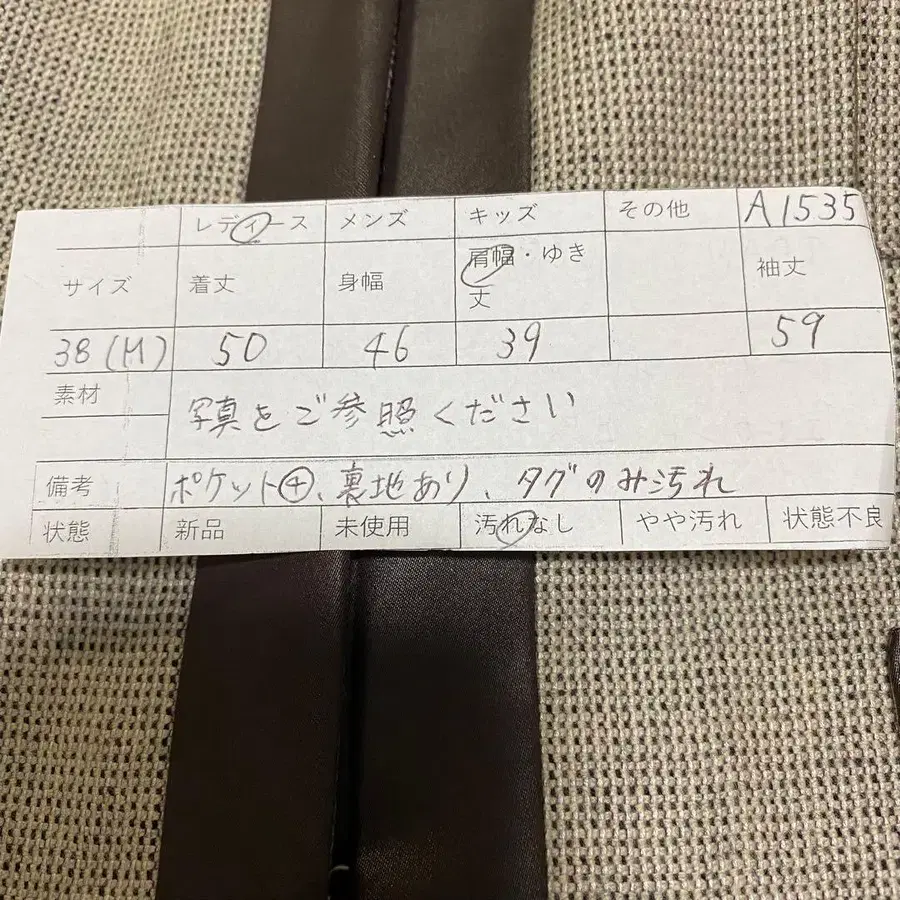 レディース メンズ キッズ その他 A1535
サイズ 着丈 身幅 肩幅・ゆき丈 袖丈
38(M) 50 46 39 59
素材 写真をご参照ください
備考 ポケット④、裏地あり、タグのみ汚れ
状態 新品 未使用 汚れなし やや汚れ 状態不良